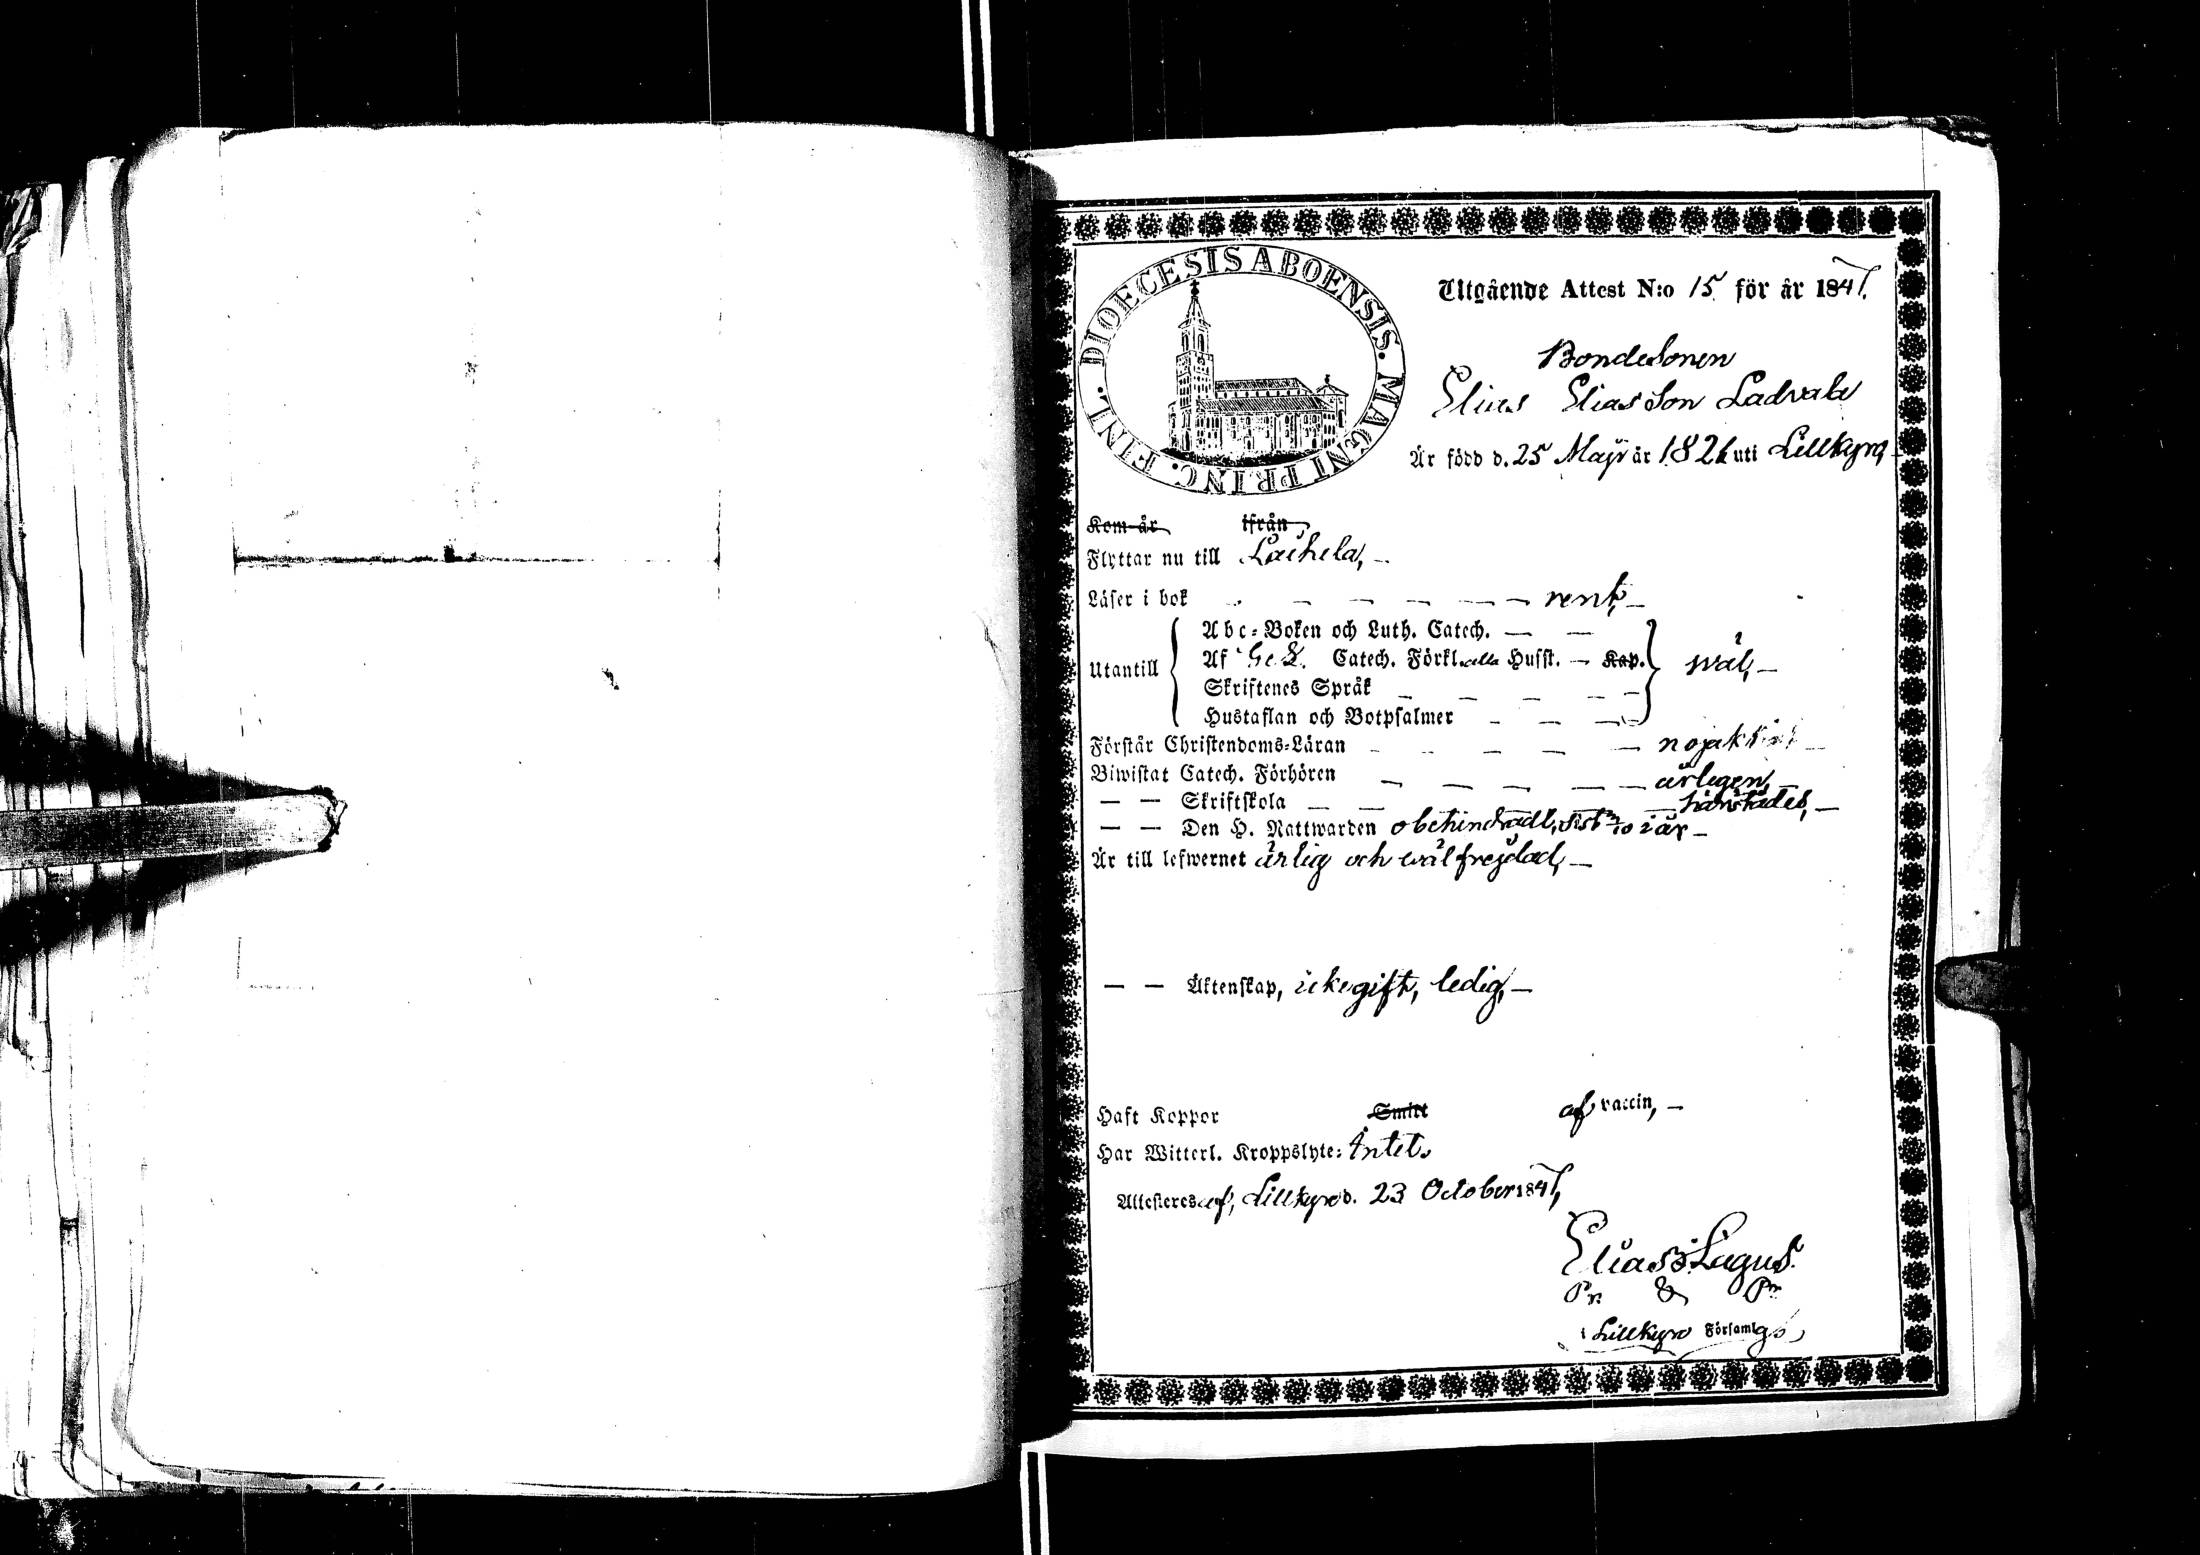 DIOECESIS ABOENSIS. MAGNI PRINC. FINL.
Utgående Attest N:o 15 för år 1847.
Bondesonen
Elias Eliasson Ladvala
Är född d. 25 Maji år 182 uti Lillkyro,
Kom år ifrån
Flyttar nu till Laihela,
Läser i bok — — — — — rent,
Utantill
Abc-Boken och Luth. Catech. — —
Af Catech. Förkl. alla Husst. — Kap. wäl,
Skriftenes Språk — — — — —
Hustaflan och Botpsalmer — — —
Förstår Christendoms-Läran — — — — — nojaktigt —
Biwistat Catech. Förhören — — — — — årligen,
— — Skriftskola — — — härstädes, —
— — Den H. Nattwarden obehindradt, sist i år —
Är till lefwernet ärlig och wälfrejdad, —
— — Äktenskap, icke gift, ledig, —
Haft Koppor Smitt af vaccin, —
Har Witterl. Kroppslyte: Intet.
Attesteres af, Lillkyro d. 23 October 1847,
Elias Lagus.
Pr. & Pr
i Lillkyro Församlg